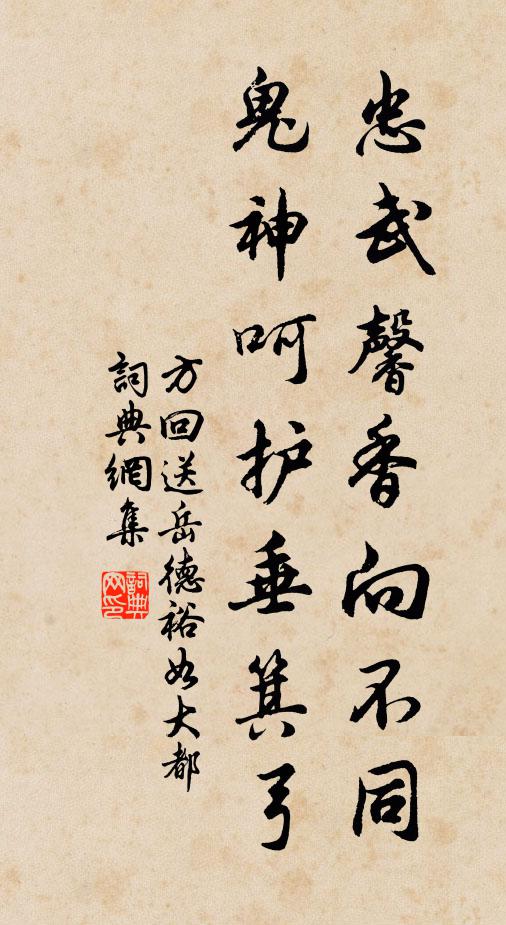 忠武馨香向不同
鬼神呵护垂箕弓
方回送岳德裕如大都
詞典網集
詞典網印